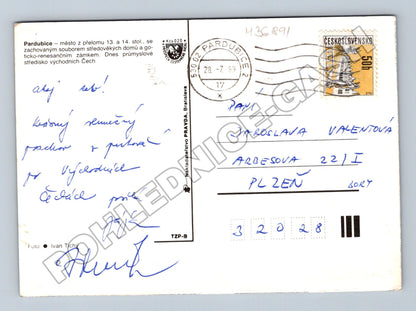 Pardubice – město z přelomu 13. a 14. stol., se
zachovaným souborem středověkých domů a go-
ticko-renesančním zámkem. Dnes průmyslové
středisko východních Čech.
436891
530 02 PARDUBICE 2
28. -7.
17
ČESKOSLOVENSKO
50h
ahoj
srdečný sluneční
pozdrav z putování
po Východních
Čechách posílá
Nakladatelství PRAVDA, Bratislava
Foto: Ivan Tichý
TZP-B
PANÍ
JAROSLAVA VALENTOVÁ
ARBESOVA 22/I
PLZEŇ
BORY
3 2 0 2 8
POHLEDNICE-GASH